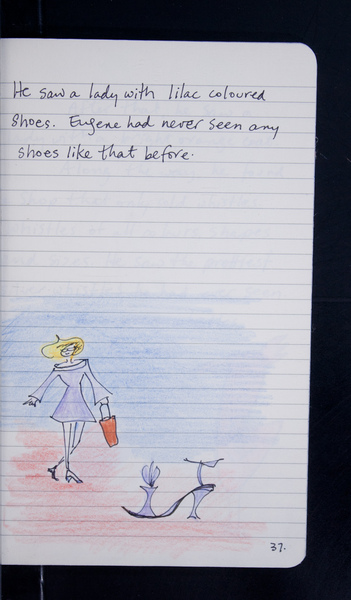 He saw a lady with lilac coloured
shoes. Eugene had never seen any
shoes like that before.
37.